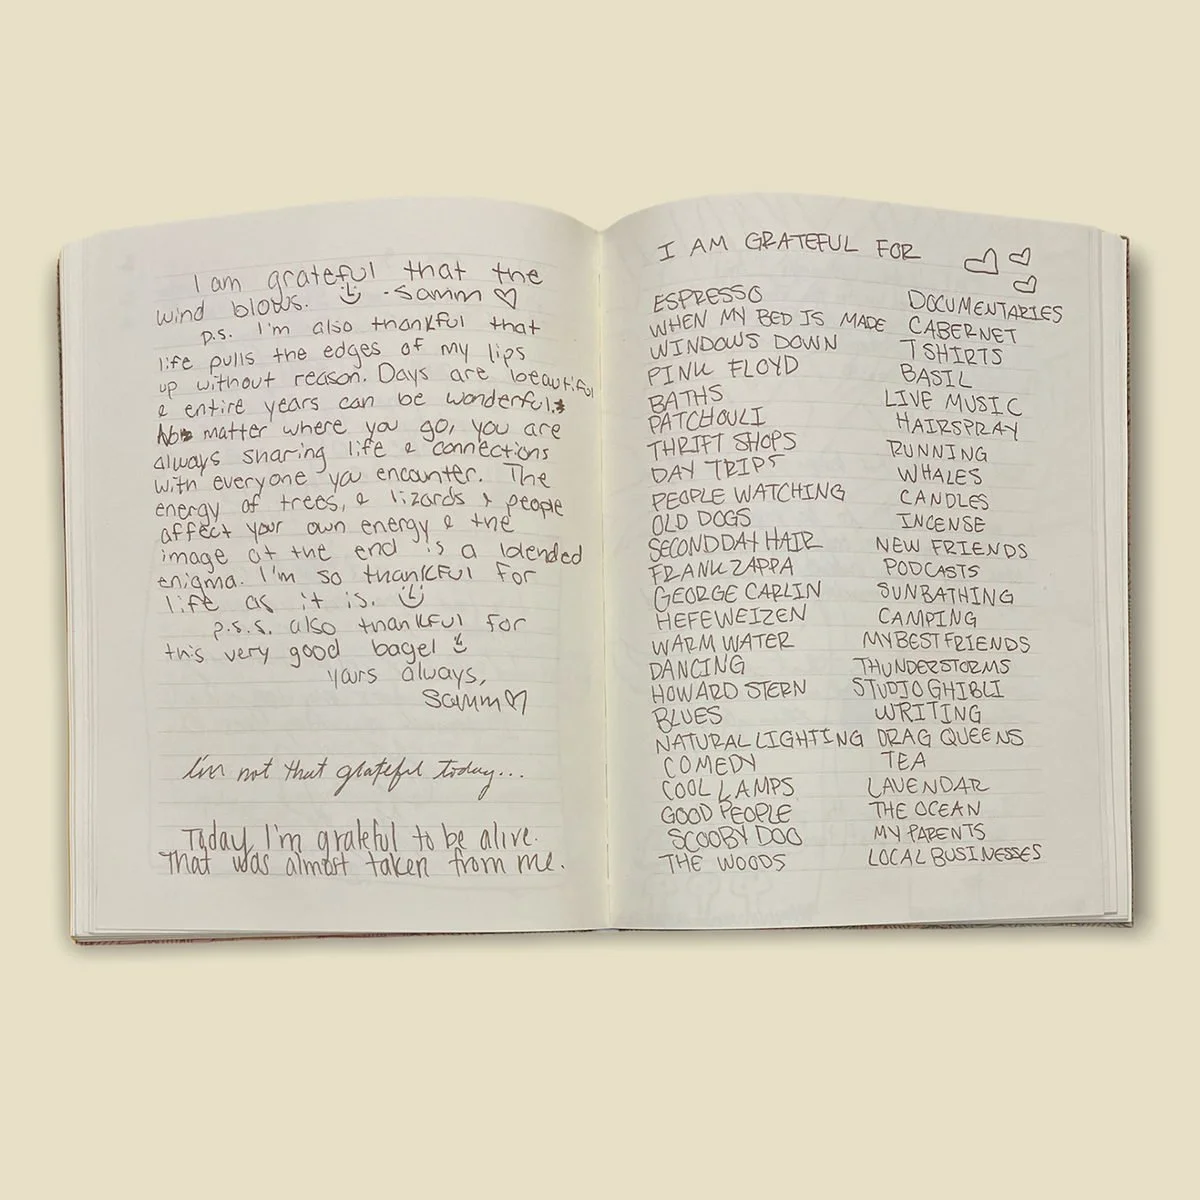 I am grateful that the
wind blows. -Samm
p.s. I'm also thankful that
life pulls the edges of my lips
up without reason. Days are beautiful
& entire years can be wonderful.
No matter where you go, you are
always sharing life & connections
with everyone you encounter. The
energy of trees, & lizards & people
affect your own energy & the
image at the end is a blended
enigma. I'm so thankful for
life as it is.
p.s.s. also thankful for
this very good bagel
yours always,
Samm
I'm not that grateful today...
Today I'm grateful to be alive.
That was almost taken from me.
I AM GRATEFUL FOR
ESPRESSO
WHEN MY BED IS MADE
WINDOWS DOWN
PINK FLOYD
BATHS
PATCHOULI
THRIFT SHOPS
DAY TRIPS
PEOPLE WATCHING
OLD DOGS
SECOND DAY HAIR
FRANK ZAPPA
GEORGE CARLIN
HEFEWEIZEN
WARM WATER
DANCING
HOWARD STERN
BLUES
NATURAL LIGHTING
COMEDY
COOL LAMPS
GOOD PEOPLE
SCOOBY DOO
THE WOODS
DOCUMENTARIES
CABERNET
T SHIRTS
BASIL
LIVE MUSIC
HAIRSPRAY
RUNNING
WHALES
CANDLES
INCENSE
NEW FRIENDS
PODCASTS
SUNBATHING
CAMPING
MY BEST FRIENDS
THUNDERSTORMS
STUDIO GHIBLI
WRITING
DRAG QUEENS
TEA
LAVENDAR
THE OCEAN
MY PARENTS
LOCAL BUSINESSES